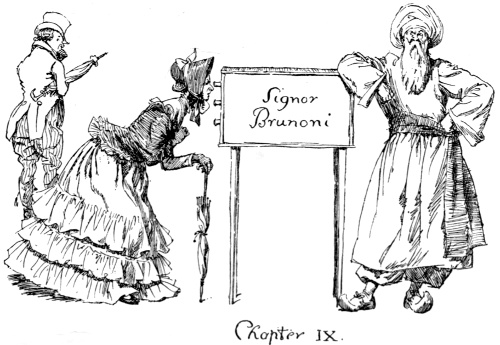 Signor
Brunoni
Chapter IX.